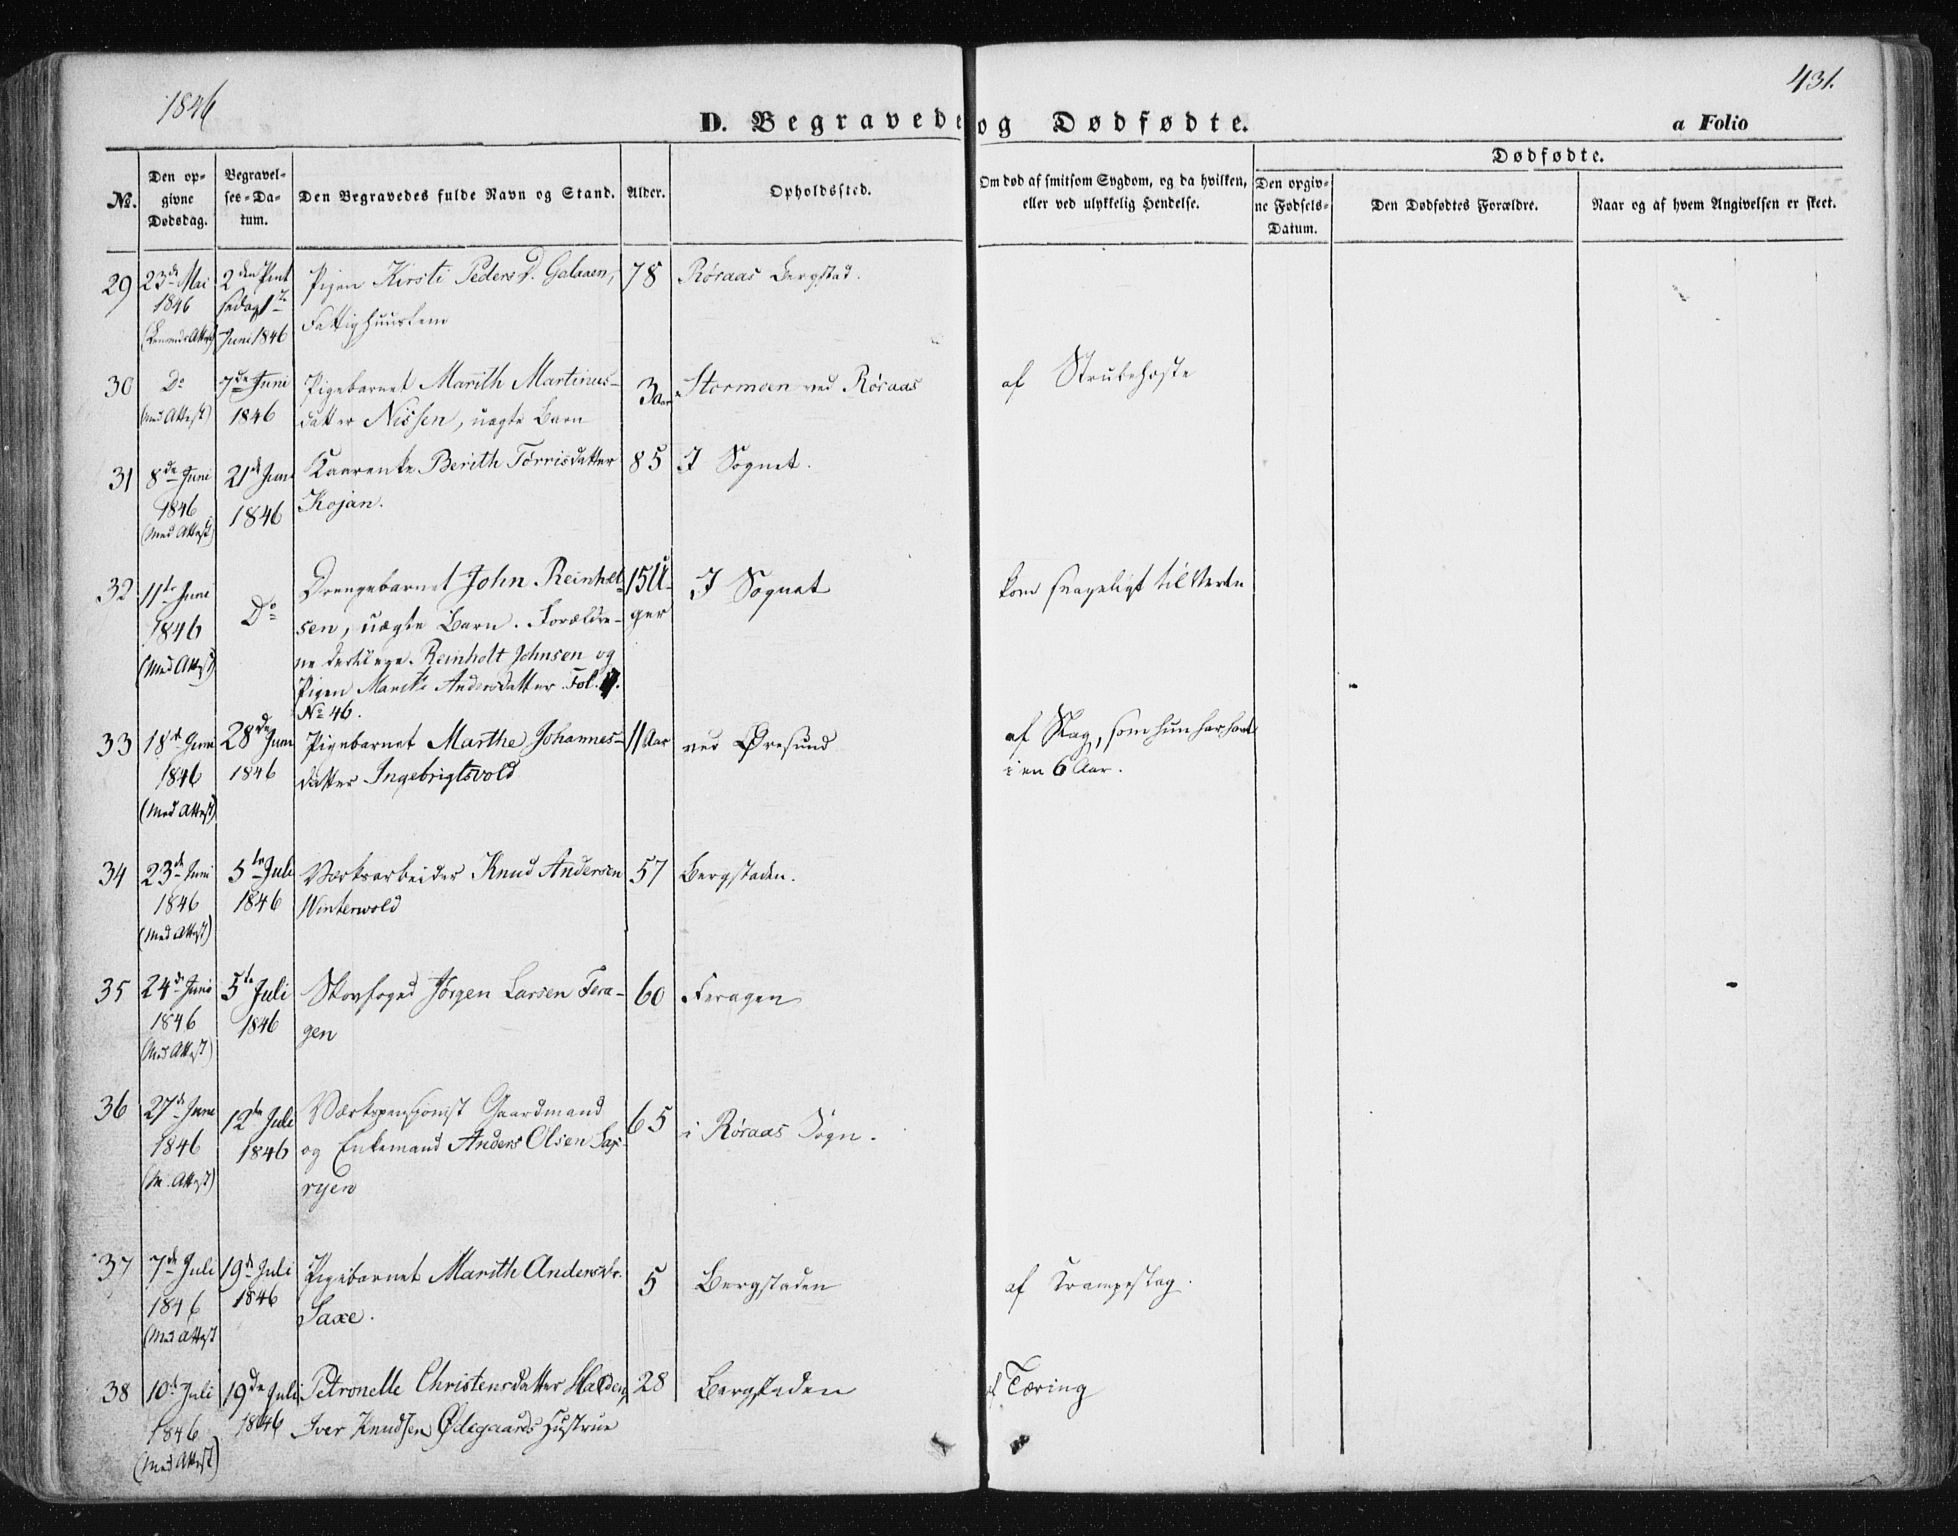 1846
431.
D. Begravede og Dødfødte.
a Folio
No.
Den op=
givne
Dødsdag.
Begravel=
ses=Da=
tum.
Den Begravedes fulde Navn og Stand.
Alder.
Opholdssted.
Om død af smitsom Sygdom, og da hvilken,
eller ved ulykkelig Hendelse.
Dødfødte.
Den opgiv=
ne Fødsels=
Datum.
Den Dødfødtes Forældre.
Naar og af hvem Angivelsen er skeet.
29 23de Mai 2den Pint Pigen Kirsti Peders D. Galaaen, 78 Røraas Bergstad.
1846 sedag 1te Fattighuuslem
Juni 1846
30 Do 7de Juni Pigebarnet Marith Martinus- 3 Aar Stormoen ved Røraas af Strubehoste
(med Attest) 1846 datter Nissen, uægte Barn
31 8de Juni 21de Juni Kaarenke Berith Tørrisdatter 85 I Sognet.
1846 1846 Kojan.
(med Attest)
32 11te Juni Do Drengebarnet John Reinholt- 15 U- I Sognet kom svageligt til Verden
1846 sen, uægte Barn. Forældre- ger
(med Attest) ne Reinholt Johnsen og
Pigen Marith Andersdatter Fol.
No 46.
33 18de Juni 28de Juni Pigebarnet Marthe Johannes- 11 Aar ved Øresund af Slag, som hun har havt
1846 1846 datter Ingebrigtsvold i en 6 Aar.
(med Attest)
34 23de Juni 5te Juli Værksarbeider Knud Andersen 57 Bergstaden.
1846 1846 Winterwold
(med Attest)
35 24de Juni 5te Juli Skovfoged Jörgen Larsen Fera- 60 Feragen
1846 1846 gen
(med Attest)
36 27de Juni 12te Juli Værkspensionist Gaardmand 65 i Røraas Sogn.
1846 1846 og Enkemand Anders Olsen Sax-
(m. Attest) ryen
37 7de Juli 19de Juli Pigebarnet Marith Andersdr. 5 Bergstaden af Krampeslag.
1846 1846 Saxe.
(med Attest
38 10de Juli 19de Juli Petronelle Christensdatter Halden, 28 Bergstaden af Tæring
1846 1846 Iver Knudsen Ødegaards Hustrue
(med Attest)